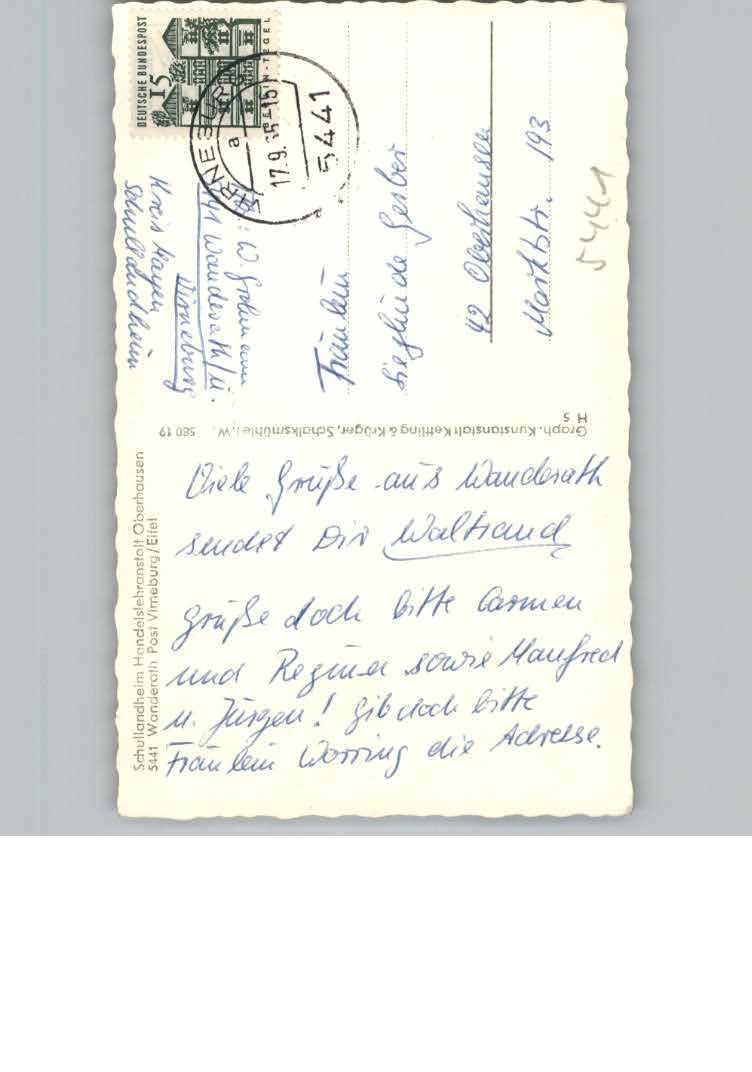 Schullandheim Handelslehranstalt Oberhausen
5441 Wanderath Post Virneburg/Eifel
Viele Grüße aus Wanderath
sendet Dir Waltraud
Grüße doch bitte Carmen
und Regina sowie Manfred
u. Jürgen! Gib doch bitte
Fräulein Worring die Adresse.
Graph. Kunstanstalt Kettling & Krüger, Schalksmühle i. W. 580 19
H S
DEUTSCHE BUNDESPOST
15
BERLIN-TEGEL
VIRNEBURG
a
17.9.65-15
5441
W.
5441 Wanderath/ü.
Virneburg
Kreis Mayen
Schullandheim
Fräulein
Sieglinde Gerber
42 Oberhausen
Marktstr. 193
5441